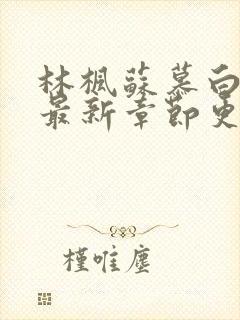 林枫蘇慕白
最新章節更
槿唯塵